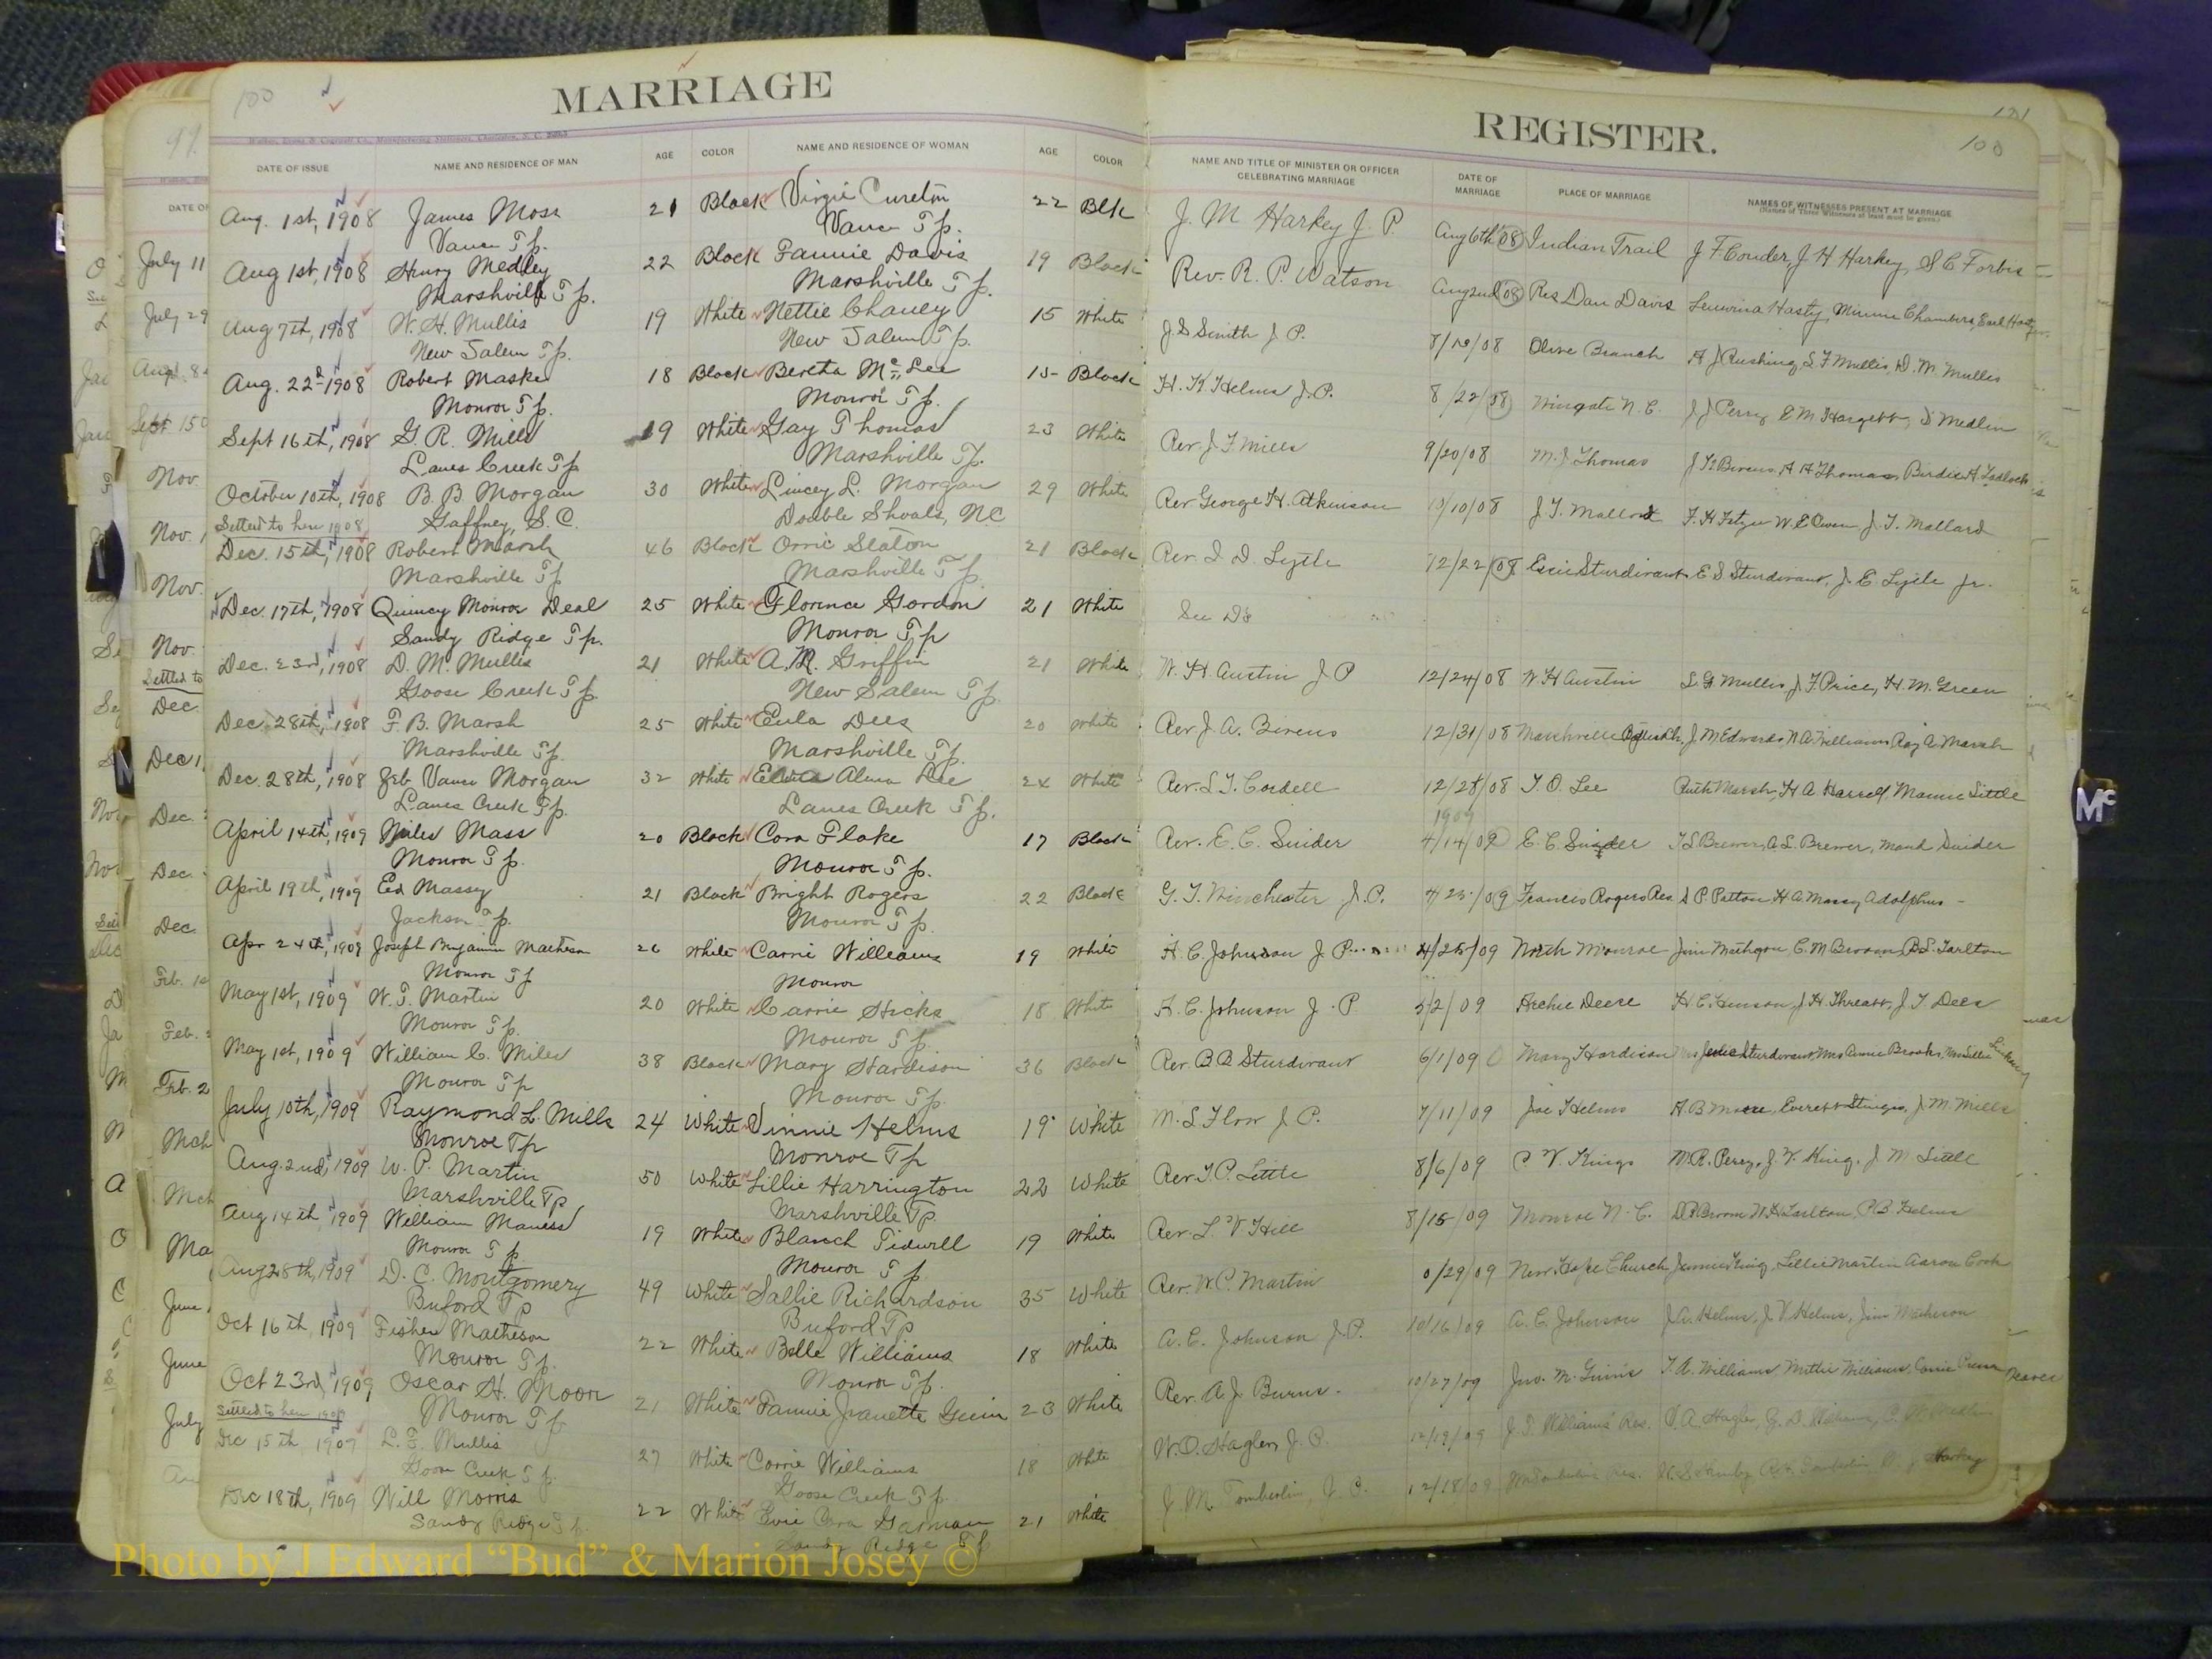 MARRIAGE
100
DATE OF ISSUE NAME AND RESIDENCE OF MAN AGE COLOR NAME AND RESIDENCE OF WOMAN AGE COLOR
Aug. 1st, 1908 James Moss 21 Black Virgie Cureton 22 Blk
Vance Tp. Vance Tp.
Aug 1st, 1908 Henry Medley 22 Black Fannie Davis 19 Black
Marshville Tp. Marshville Tp.
Aug 7th, 1908 W. H. Mullis 19 White Nettie Chaney 15 White
New Salem Tp. New Salem Tp.
Aug. 22d 1908 Robert Maske 18 Black Bertha McLee 15 Black
Monroe Tp. Monroe Tp.
Sept 16th, 1908 G. R. Mills 19 White Gay Thomas 23 White
Lanes Creek Tp Marshville Tp.
October 10th, 1908 B. B. Morgan 30 White Lincey L. Morgan 29 White
Settled to here 1908 Gaffney, S. C. Double Shoals, NC
Dec. 15th, 1908 Robert Marsh 46 Black Orrie Slaton 21 Black
Marshville Tp Marshville Tp
Dec. 17th, 1908 Quincy Monroe Deal 25 White Florence Gordon 21 White
Sandy Ridge Tp. Monroe Tp
Dec. 23rd, 1908 D. M. Mullis 21 White A. M. Griffin 21 White
Goose Creek Tp New Salem Tp.
Dec. 28th, 1908 F. B. Marsh 25 White Eula Dees 20 White
Marshville Tp. Marshville Tp.
Dec. 28th, 1908 Zeb Vance Morgan 32 White Alma Lee 24 White
Lanes Creek Tp. Lanes Creek Tp.
April 14th, 1909 Miles Mass 20 Black Cora Flake 17 Black
Monroe Tp. Monroe Tp.
April 19th, 1909 Ed Massey 21 Black Bright Rogers 22 Black
Jackson Tp. Monroe Tp.
Apr 24th, 1909 Joseph Benjamin Matheson 26 White Carrie Williams 19 White
Monroe Tp Monroe
May 1st, 1909 W. T. Martin 20 White Carrie Hicks 18 White
Monroe Tp. Monroe Tp.
May 1st, 1909 William C. Miles 38 Black Mary Hardison 36 Black
Monroe Tp Monroe Tp.
July 10th, 1909 Raymond L. Mills 24 White Vinnie Helms 19 White
Monroe Tp Monroe Tp
Aug. 2nd, 1909 W. P. Martin 50 White Lillie Harrington 22 White
Marshville Tp Marshville Tp
Aug 14th 1909 William Maness 19 White Blanch Tidwell 19 White
Monroe Tp Monroe Tp
Aug 28th, 1909 D. C. Montgomery 49 White Sallie Richardson 35 White
Buford Tp Buford Tp
Oct 16th 1909 Fisher Matheson 22 White Belle Williams 18 White
Monroe Tp. Monroe Tp.
Oct 23rd 1909 Oscar H. Moon 21 White Fannie Jeanette Guin 23 White
Settled to here 1909 Monroe Tp
Dec 15th 1909 L. F. Mullis 27 White Corrie Williams 18 White
Goose Creek Tp. Goose Creek Tp.
Dec 18th, 1909 Will Morris 22 White Evie Cora Garman 21 White
Sandy Ridge Tp. Sandy Ridge Tp
REGISTER.
101
100
NAME AND TITLE OF MINISTER OR OFFICER CELEBRATING MARRIAGE DATE OF MARRIAGE PLACE OF MARRIAGE NAMES OF WITNESSES PRESENT AT MARRIAGE
(Names of Three Witnesses at least must be given.)
J. M Harkey J. P. Aug 6th 08 Indian Trail J F Conder, J H Harkey, S C Forbis
Rev. R. P. Watson Aug 2nd 08 Res Dan Davis Hasty, Minnie Chambers, Earl Hasty
J. S Smith J P. 8/ /08 Olive Branch A J Rushing, S F Mullis, D. M. Mullis
H. K Helms J. P. 8/22/08 Wingate N. C. J J Perry E M Hargett, D Medlin
Rev. J. F. Mills 9/20/08 M. J Thomas J. H Bivens, A A Thomas, Birdie A. Tadlock
Rev George H. Atkinson 10/10/08 J. T. Mallard F. H Fetzer W. E Owen J. T. Mallard
Rev. I. D. Lytle 12/22/08 Essie Sturdivant E S Sturdivant, J. E. Lytle Jr.
W. H Austin J P 12/24/08 W. H Austin L. G Mullis, J F. Price, H. M. Green
Rev J. A. Bivens 12/31/08 Marshville J M Edwards, N A Williams Ray A Marsh
Rev. L. T. Cordell 12/28/08 T. O. Lee Ruth Marsh, H A Harrell, Mamie Little
1909
Rev. E. C. Snider 4/14/09 E. C. Snider T L Brewer, A L. Brewer, Maud Snider
G. T. Winchester J. P. 4/25/09 Francis Rogers Res S P. Patton H A Massey Adolphus
A. C. Johnson J P. 4/25/09 North Monroe Jim Matheson, C. M Broom, B. L. Tarlton
A. C. Johnson J. P 5/2/09 Archie Deese H. C. Hinson, J H. Threatt, J. T. Dees
Rev. B B Sturdivant 6/1/09 Mary Hardison Mrs Julia Sturdivant Mrs Annie Brooks,
M. L Flow J P. 7/11/09 Joe Helms A. B Moore, Everett Sturgis, J. M. Mills
Rev. T. P. Little 8/6/09 C V. Kings W. R. Perry, J. V. King. J M Little
Rev. L. V Hill 8/15/09 Monroe N. C. D P Broom N. H Tarlton, P. B Helms
Rev. W. C. Martin 0/29/09 New Hope Church Jennie King, Lillie Martin Aaron Cook
A. C. Johnson J. P. 10/16/09 A. C. Johnson J. A. Helms, J. V Helms, Jim Matheson
Rev. A. J. Burns. 10/27/09 Jno. M. Guins T. A. Williams Mittie Williams, Carrie
W. O. Hagler, J. P. 12/19/09 J. T. Williams Res. V. A Hagler,
J. M. Tomberlin, J. P. 12/18/09 Res. Harkey
Photo by J Edward “Bud” & Marion Josey ©